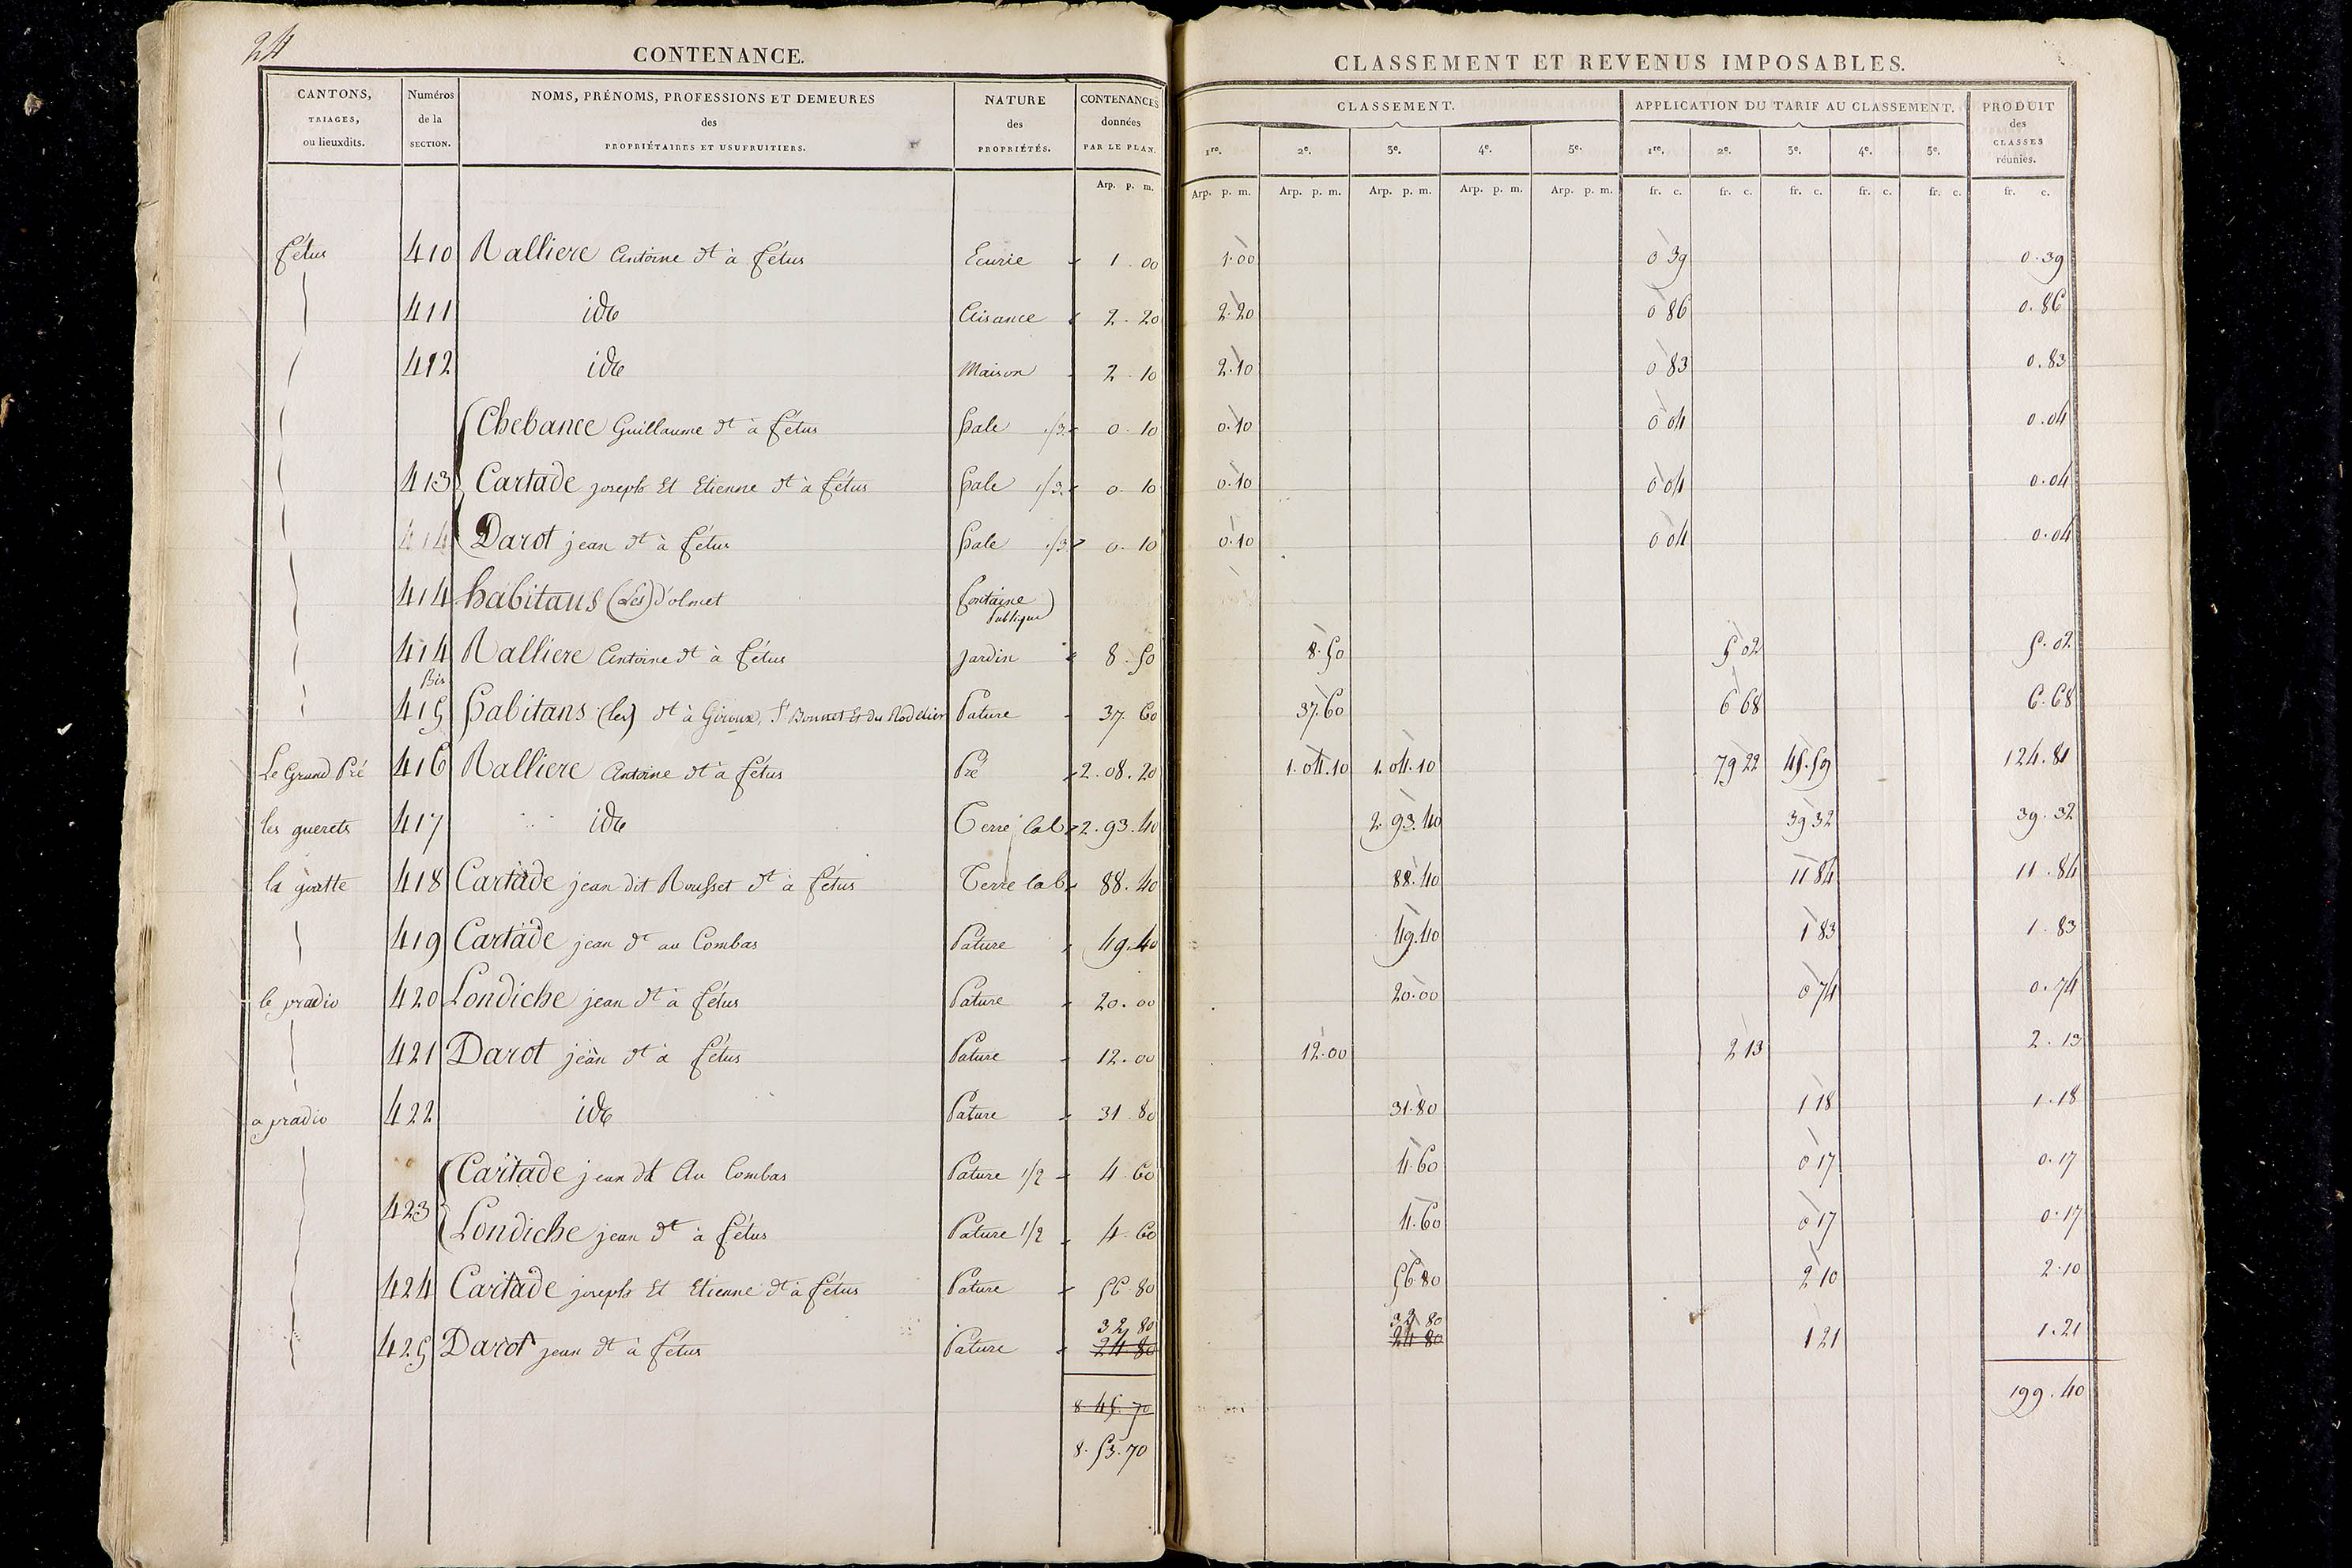 24
CONTENANCE.
CLASSEMENT ET REVENUS IMPOSABLES.
CANTONS, TRIAGES, ou lieuxdits.
Numéros de la SECTION.
NOMS, PRÉNOMS, PROFESSIONS ET DEMEURES des PROPRIÉTAIRES ET USUFRUITIERS.
NATURE des PROPRIÉTÉS.
CONTENANCES données PAR LE PLAN.
CLASSEMENT.
APPLICATION DU TARIF AU CLASSEMENT.
PRODUIT des CLASSES réunies.
1re. 2e. 3e. 4e. 5e. 1re. 2e. 3e. 4e. 5e.
Arp. p. m. Arp. p. m. Arp. p. m. Arp. p. m. Arp. p. m. Arp. p. m. fr. c. fr. c. fr. c. fr. c. fr. c. fr. c.
fétus 410 Ralliere Antoine dt à fétus Ecurie 1.00 1.00 0 39 0.39
411 ide Aisance 2.20 2.20 0 86 0.86
412 ide Maison 2.10 2.10 0 83 0.83
Chebance Guillaume dt à fétus pale 1/3 0.10 0.10 0 04 0.04
413 Cartade joseph Et Etienne dt à fétus pale 1/3 0.10 0.10 0 04 0.04
414 Darot jean dt à fétus pale 1/3 0.10 0.10 0 04 0.04
414 habitans (Les) d'olmet fontaine publique
414 Bis Ralliere Antoine dt à fétus Jardin 8.50 8.50 5 02 5.02
415 habitans (les) dt à Giroux, St Bonnet Et du Pature 37.60 37.60 6 68 6.68
Le Grand Pré 416 Ralliere Antoine dt à fétus Pré 2.08.20 1.04.10 1.04.10 79 22 45.59 124.81
les guerets 417 ide Terre lab 2.93.40 2.93.40 39 32 39.32
la goutte 418 Cartade jean dit Rousset dt à fétus Terre lab 88.40 88.40 11 84 11.84
419 Cartade jean dt au Combas Pature 49.40 49.40 1 83 1.83
le pradio 420 Londiche jean dt à fétus Pature 20.00 20.00 0 74 0.74
421 Darot jean dt à fétus Pature 12.00 12.00 2 13 2.13
a pradio 422 ide Pature 31.80 31.80 1 18 1.18
Cartade jean dt Au Combas Pature 1/2 4.60 4.60 0 17 0.17
423
Londiche jean dt à fétus Pature 1/2 4.60 4.60 0 17 0.17
424 Cartade joseph Et Etienne dt à fétus Pature 56 80 56 80 2 10 2.10
32 80 32 80
425 Darot jean dt à fétus Pature 24 80 24 80 1 21 1.21
8.45.70 199.40
8.53.70